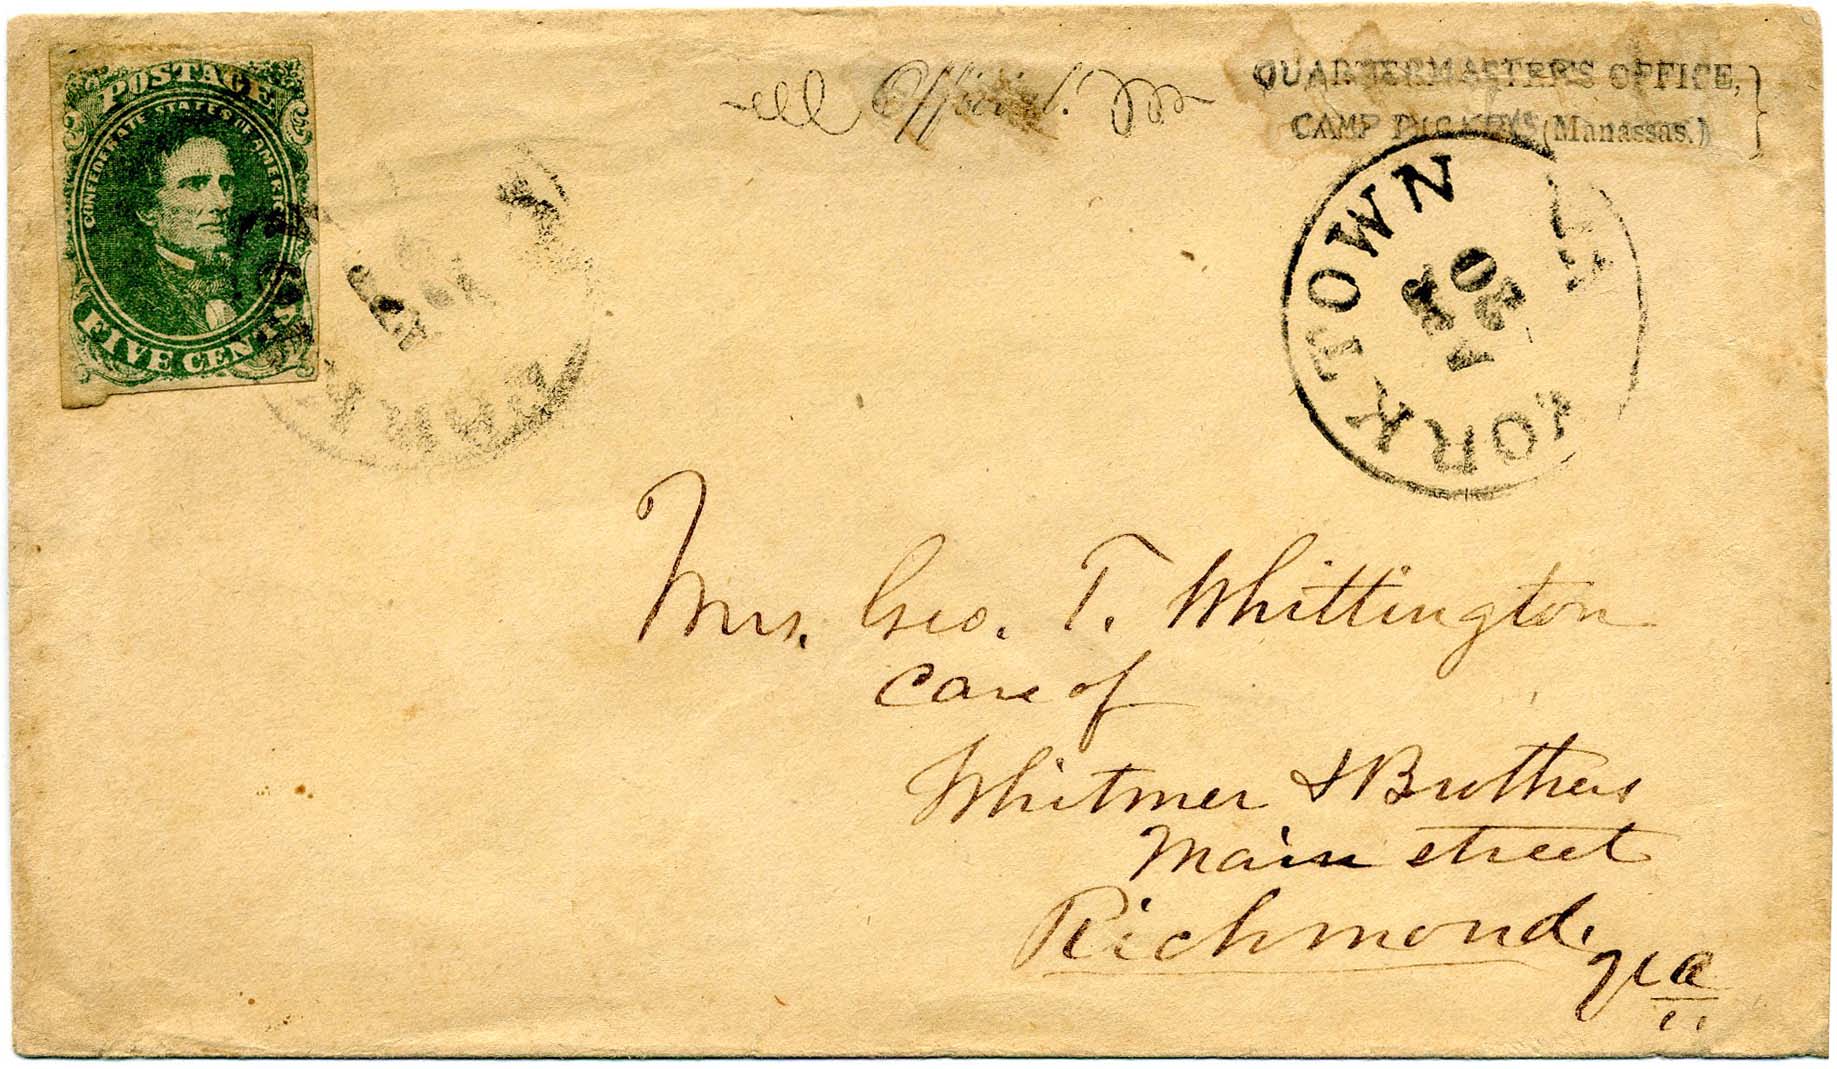 POSTAGE
CONFEDERATE STATES OF AMERICA
FIVE CEN
Official.
QUARTERMASTER'S OFFICE,
CAMP PICKENS (Manassas.)
YORKTOWN
Mrs. Geo. T. Whittington
Care of
Whitmer & Brothers
Main street
Richmond.
Va